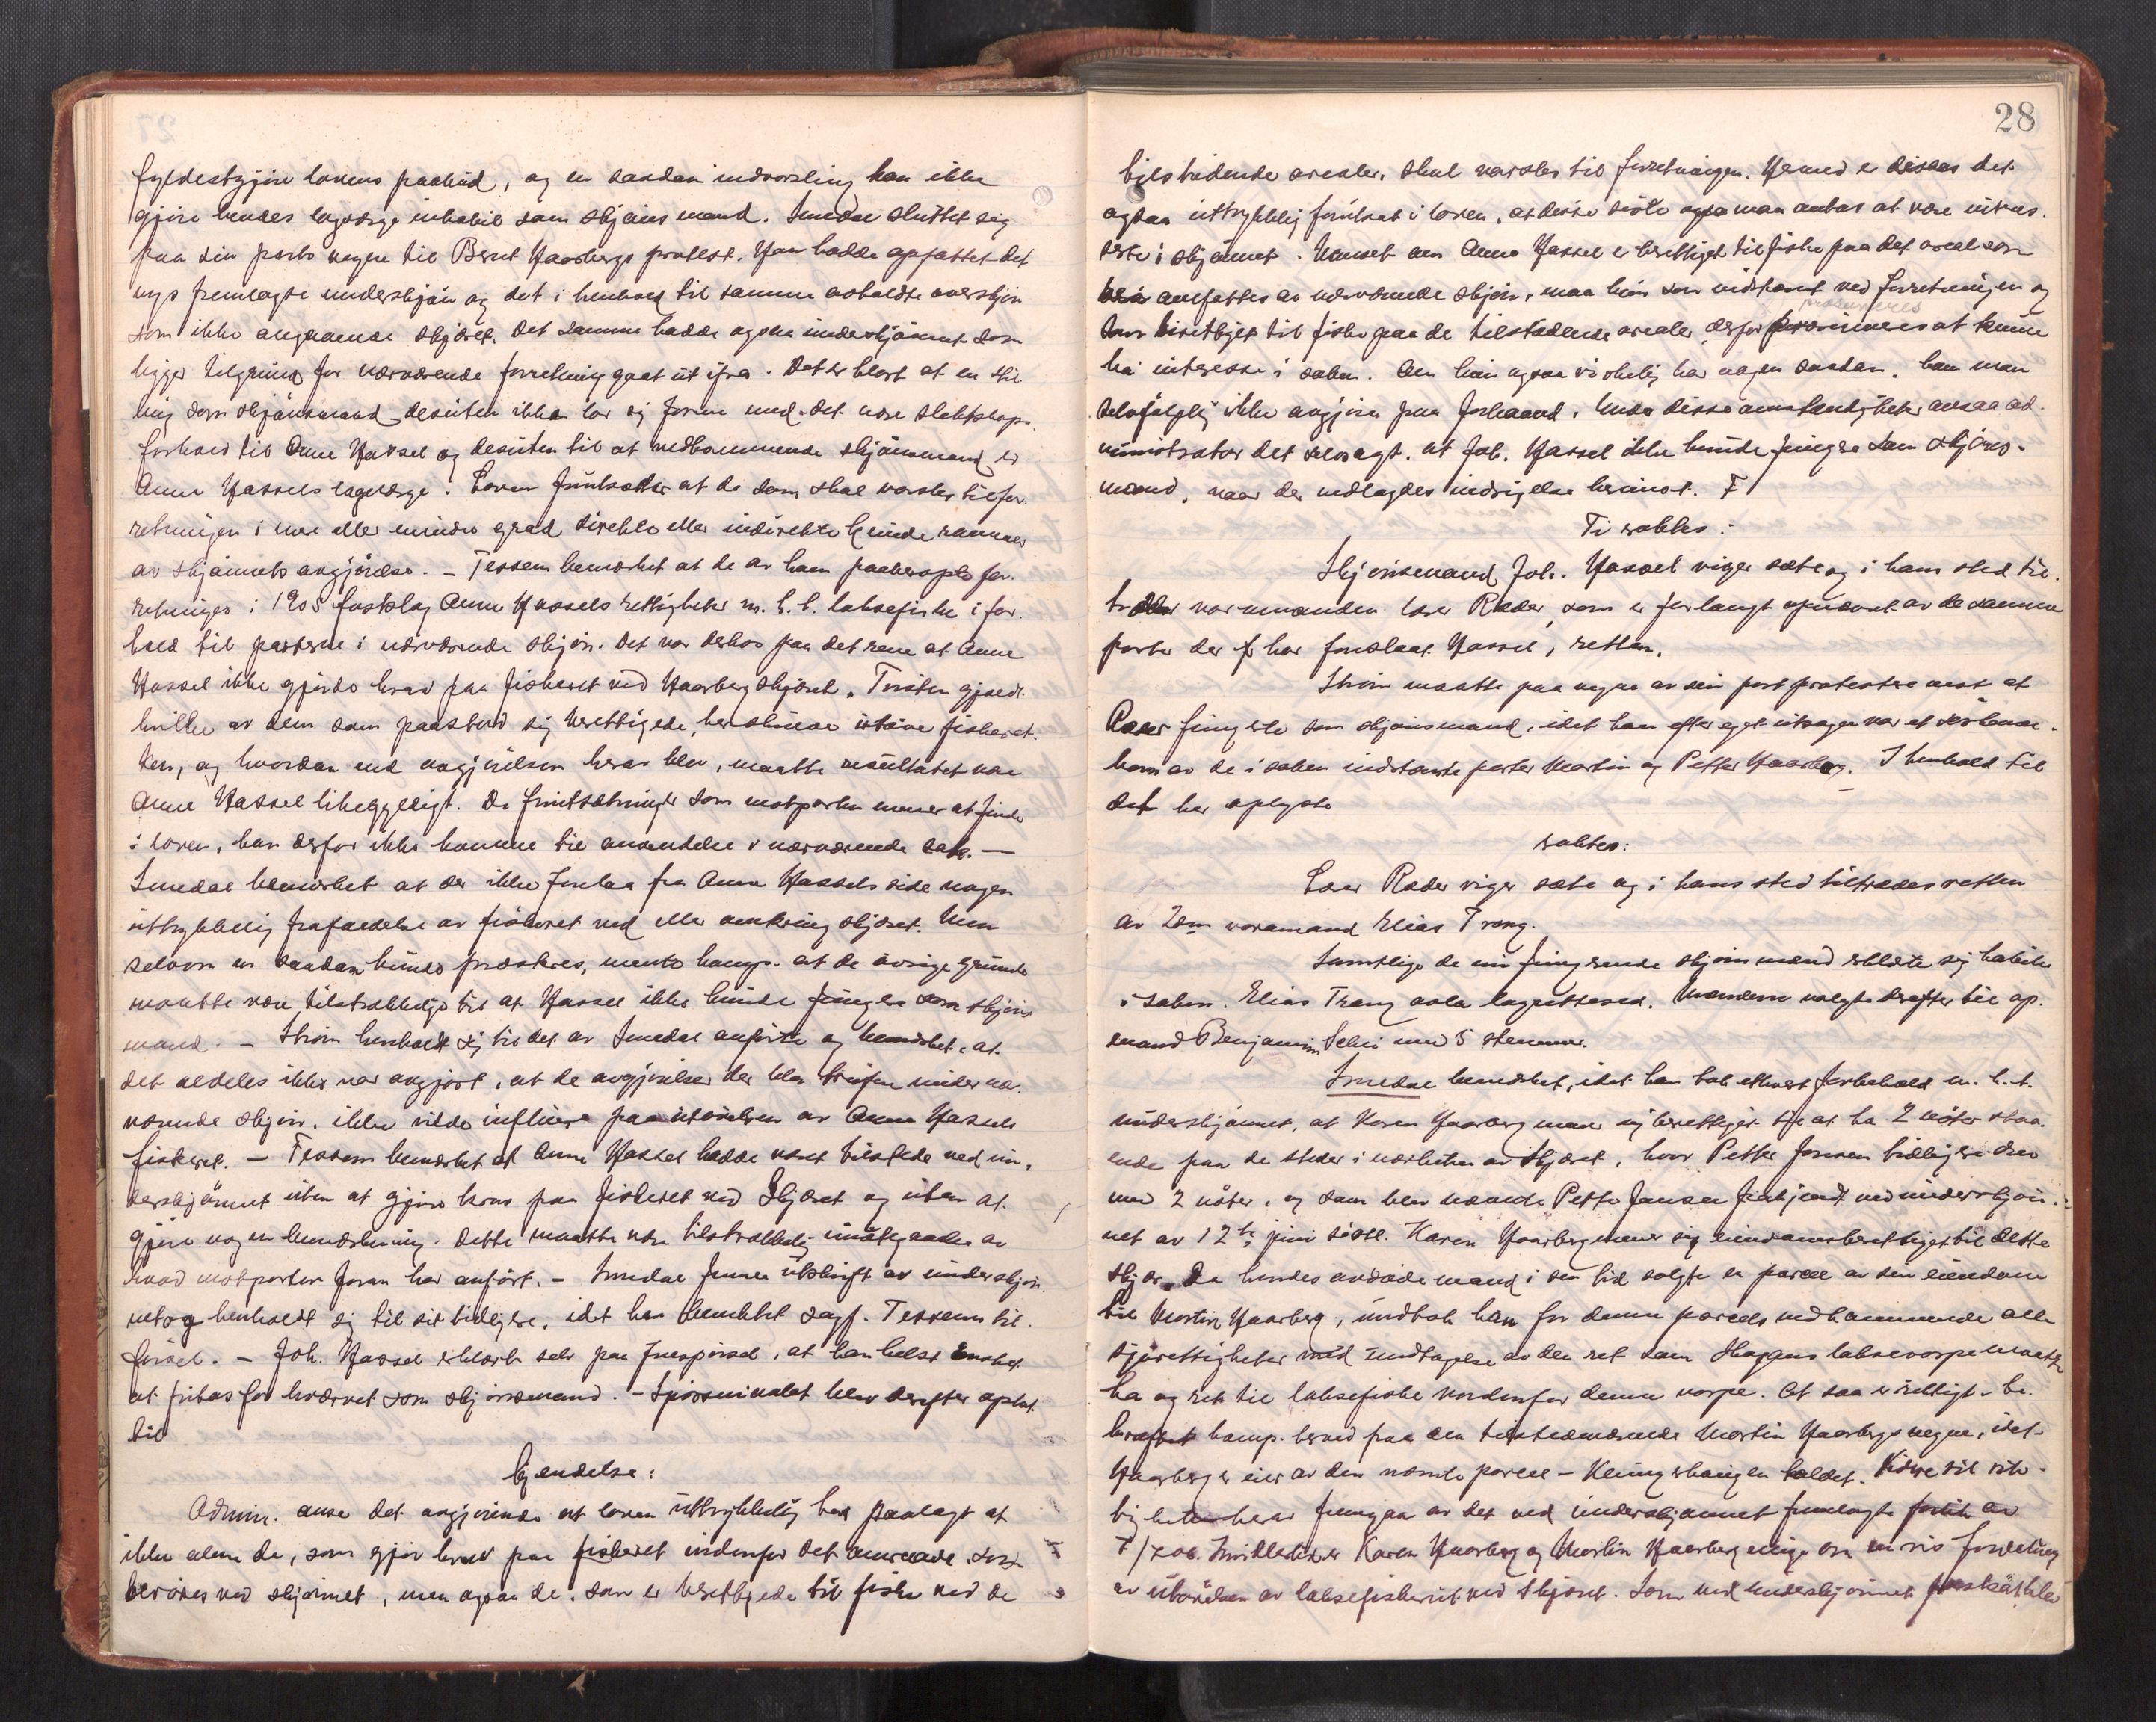 fyldestgjøre lovens paabud, og en saadan indvarsling kan ikke
gjøre hendes lagverge inhabil som skjønsmand. Smedal sluttet sig
paa sin parts vegne til Bernt Haarbergs protest. Han hadde opfattet det
nys fremlagte underskjøn og det i henhold til samme avholdte overskjøn
som ikke angaaende skjæret. Det samme hadde ogsaa underskjønnet som
ligger tilgrund for nærværende forretning gaat ut ifra. Det er klart at en stil
ling som skjønsmand desuten ikke lar sig forene med det nære slektskaps
forhold til Anne Hassel og desuten til at vedkommende skjønsmand er
Anne Hassels lagverge. Loven forutsætter at de som skal varsles til for
retningen i mere eller mindre grad direkte eller indirekte kunde rammes
av skjønnets avgjørelse. – Tessem bemerket at de av ham paaberopte for
retninger i 1905 fastslog Anne Hassels rettigheter m. h. t. laksefiske i for
hold til parterne i nærværende skjøn. Det var derhos paa det rene at Anne
Hassel ikke gjorde krav paa fisket ved Haarbergskjæret. Tvisten gjaldt
hvilke av dem som paastod sig berettigede, her skulde utøve fisket
ken, og hvordan end avgjørelsen herav blev, maatte resultatet være
Anne Hassel likegyldigt. De forutsætninger som motparten mener at finde
i loven, kan derfor ikke komme til anvendelse i nærværende sak. –
Smedal bemerket at der ikke forelaa fra Anne Hassels side nogen
uttrykkelig frafaldelse av fiskeret ved eller omkring skjæret. Men
selvom en saadan kunde præsteres, mente komp. at de øvrige grunde
maatte være tilstrækkelige til at Hassel ikke kunde fungere som skjøns
mand. – Strøm henholdt sig til det av Smedal anførte og bemerket, at
det aldeles ikke var avgjort, at de avgjørelser der blev truffne under nær
værende skjøn, ikke vilde influere paa utøvelsen av Anne Hassels
fiskeret. – Tessem bemerket at Anne Hassel hadde været tilstede ved un-
derskjønnet uten at gjøre krav paa fisket ved Skjæret og uten at
gjøre nogen bemerkning. Dette maatte være tilstrækkelig imøtegaaelse av
hvad motparten foran har anført. – Smedal fremla utskrift av underskjøn
net og henholdt sig til sit tidligere, idet han benektet sagf. Tessems til
førsel. – Joh. Hassel erklærte selv paa forespørsel, at han helst ønsket
at fritas for hvervet som skjønsmand. – Spørsmaalet blev derefter optat
til
kjendelse:
Admin. anser det avgjørende at loven uttrykkelig har paalagt at
ikke alene de, som gjør krav paa fisket indenfor det omraade som
berøres ved skjønnet, men ogsaa de, som er berettigede til fiske ved de
28
tilstødende arealer, skal varsles til forretningen. Hermed er det
ogsaa uttrykkelig forutsat i loven, at disse sidste ogsaa maa antas at være interes-
serte i skjønnet. Uanset om Anne Hassel er berettiget til fiske paa det areal som
omfattes av nærværende skjøn, maa hun som indstevnt ved forretningen og
som berettiget til fiske paa de tilstødende arealer, derfor præsumeres at kunne
ha interesse i saken. Om hun ogsaa virkelig har nogen saadan, kan man
selvfølgelig ikke avgjøre paa forhaand. Under disse omstændigheter ansaa ad-
ministrator det selvsagt, at Joh. Hassel ikke kunde fungere som skjøns-
mand, naar der nedlagdes indsigelse herimot. F
Ti vaktes:
Skjønsmand Joh. Hassel viger sæte og i hans sted til-
træder varamanden Lars Ræder, som er forlangt opnævnt av de samme
parter der har foreslaat Hassel, retten.
Strøm maatte paa vegne av sin part protestere mot at
Ræder fungerte som skjønsmand, idet han efter eget utsagn var et søskende-
barn av de i saken indstevnte parter Martin og Petter Haarberg. I henhold til
det her oplyste
vaktes:
Lars Ræder viger sæte og i hans sted tiltrædes retten
av 2den varamand Elias Trang.
Samtlige de nu fungerende skjønsmænd erklærte sig habile
i saken. Elias Trang avla lagrettesed. Mændene valgte derefter til op-
mand Benjamin Selvi med 5 stemmer.
Smedal bemerket, idet han tok ethvert forbehold m. h. t.
underskjønnet, at Karen Haarberg mener sig berettiget til at ha 2 nøter staa-
ende paa de steder i nærheten av Skjæret, hvor Petter Jensen tidligere drev
med 2 nøter, og som blev nævnte Petter Jensen frakjendt ved underskjøn-
net av 12te juni sidstl. Karen Haarberg mener sig eiendomsberettiget til dette
skjær. Da hendes avdøde mand i sin tid solgte en parcel av sin eiendom
til Martin Haarberg, undtok han for denne parcels vedkommende alle
sjørettigheter med undtagelse av den ret som Skaggens laksevorpe maatte
ha og ret til laksefiske nordenfor denne vorpe. At saa er riktigt, be-
kræftet komp. herved paa den tilstedeværende Martin Haarbergs vegne, idet
Haarberg er eier av den nævnte parcel – Klungerhaugen kaldet. Videre vil rik-
tigheten herav fremgaa av det ved underskjønnet fremlagte av
7/7 06. Imidlertid er Karen Haarberg og Martin Haarberg enige om en vis fordeling
av utøvelsen av laksefiskeriet ved Skjæret. Som ved underskjønnet forutsat blev